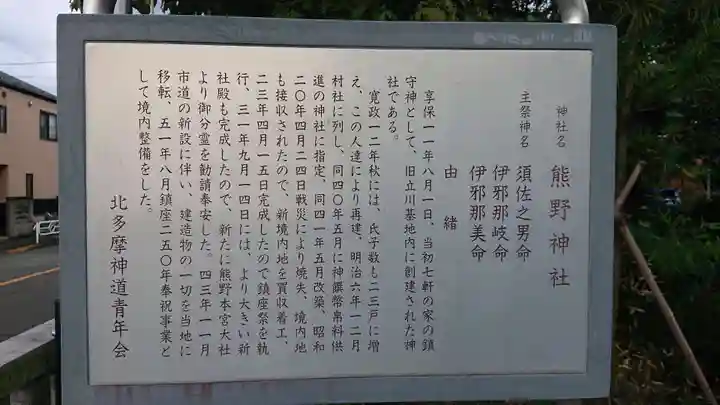 神社名　熊野神社
主祭神名　須佐之男命
伊邪那岐命
伊邪那美命
由緒
享保一一年八月一日、当初七軒の家の鎮
守神として、旧立川基地内に創建された神
社である。
寛政一二年秋には、氏子数も二三戸に増
え、この人達により再建、明治六年一二月
村社に列し、同四〇年五月に神饌幣帛料供
進の神社に指定、同四一年五月改築、昭和
二〇年四月二四日戦災により焼失、境内地
も接収されたので、新境内地を買収着工、
二三年四月一五日完成したので鎮座祭を執
行、三一年九月一四日には、より大きい新
社殿も完成したので、新たに熊野本宮大社
より御分霊を勧請奉安した。四三年一一月
市道の新設に伴い、建造物の一切を当地に
移転、五一年八月鎮座二五〇年奉祝事業と
して境内整備をした。
北多摩神道青年会